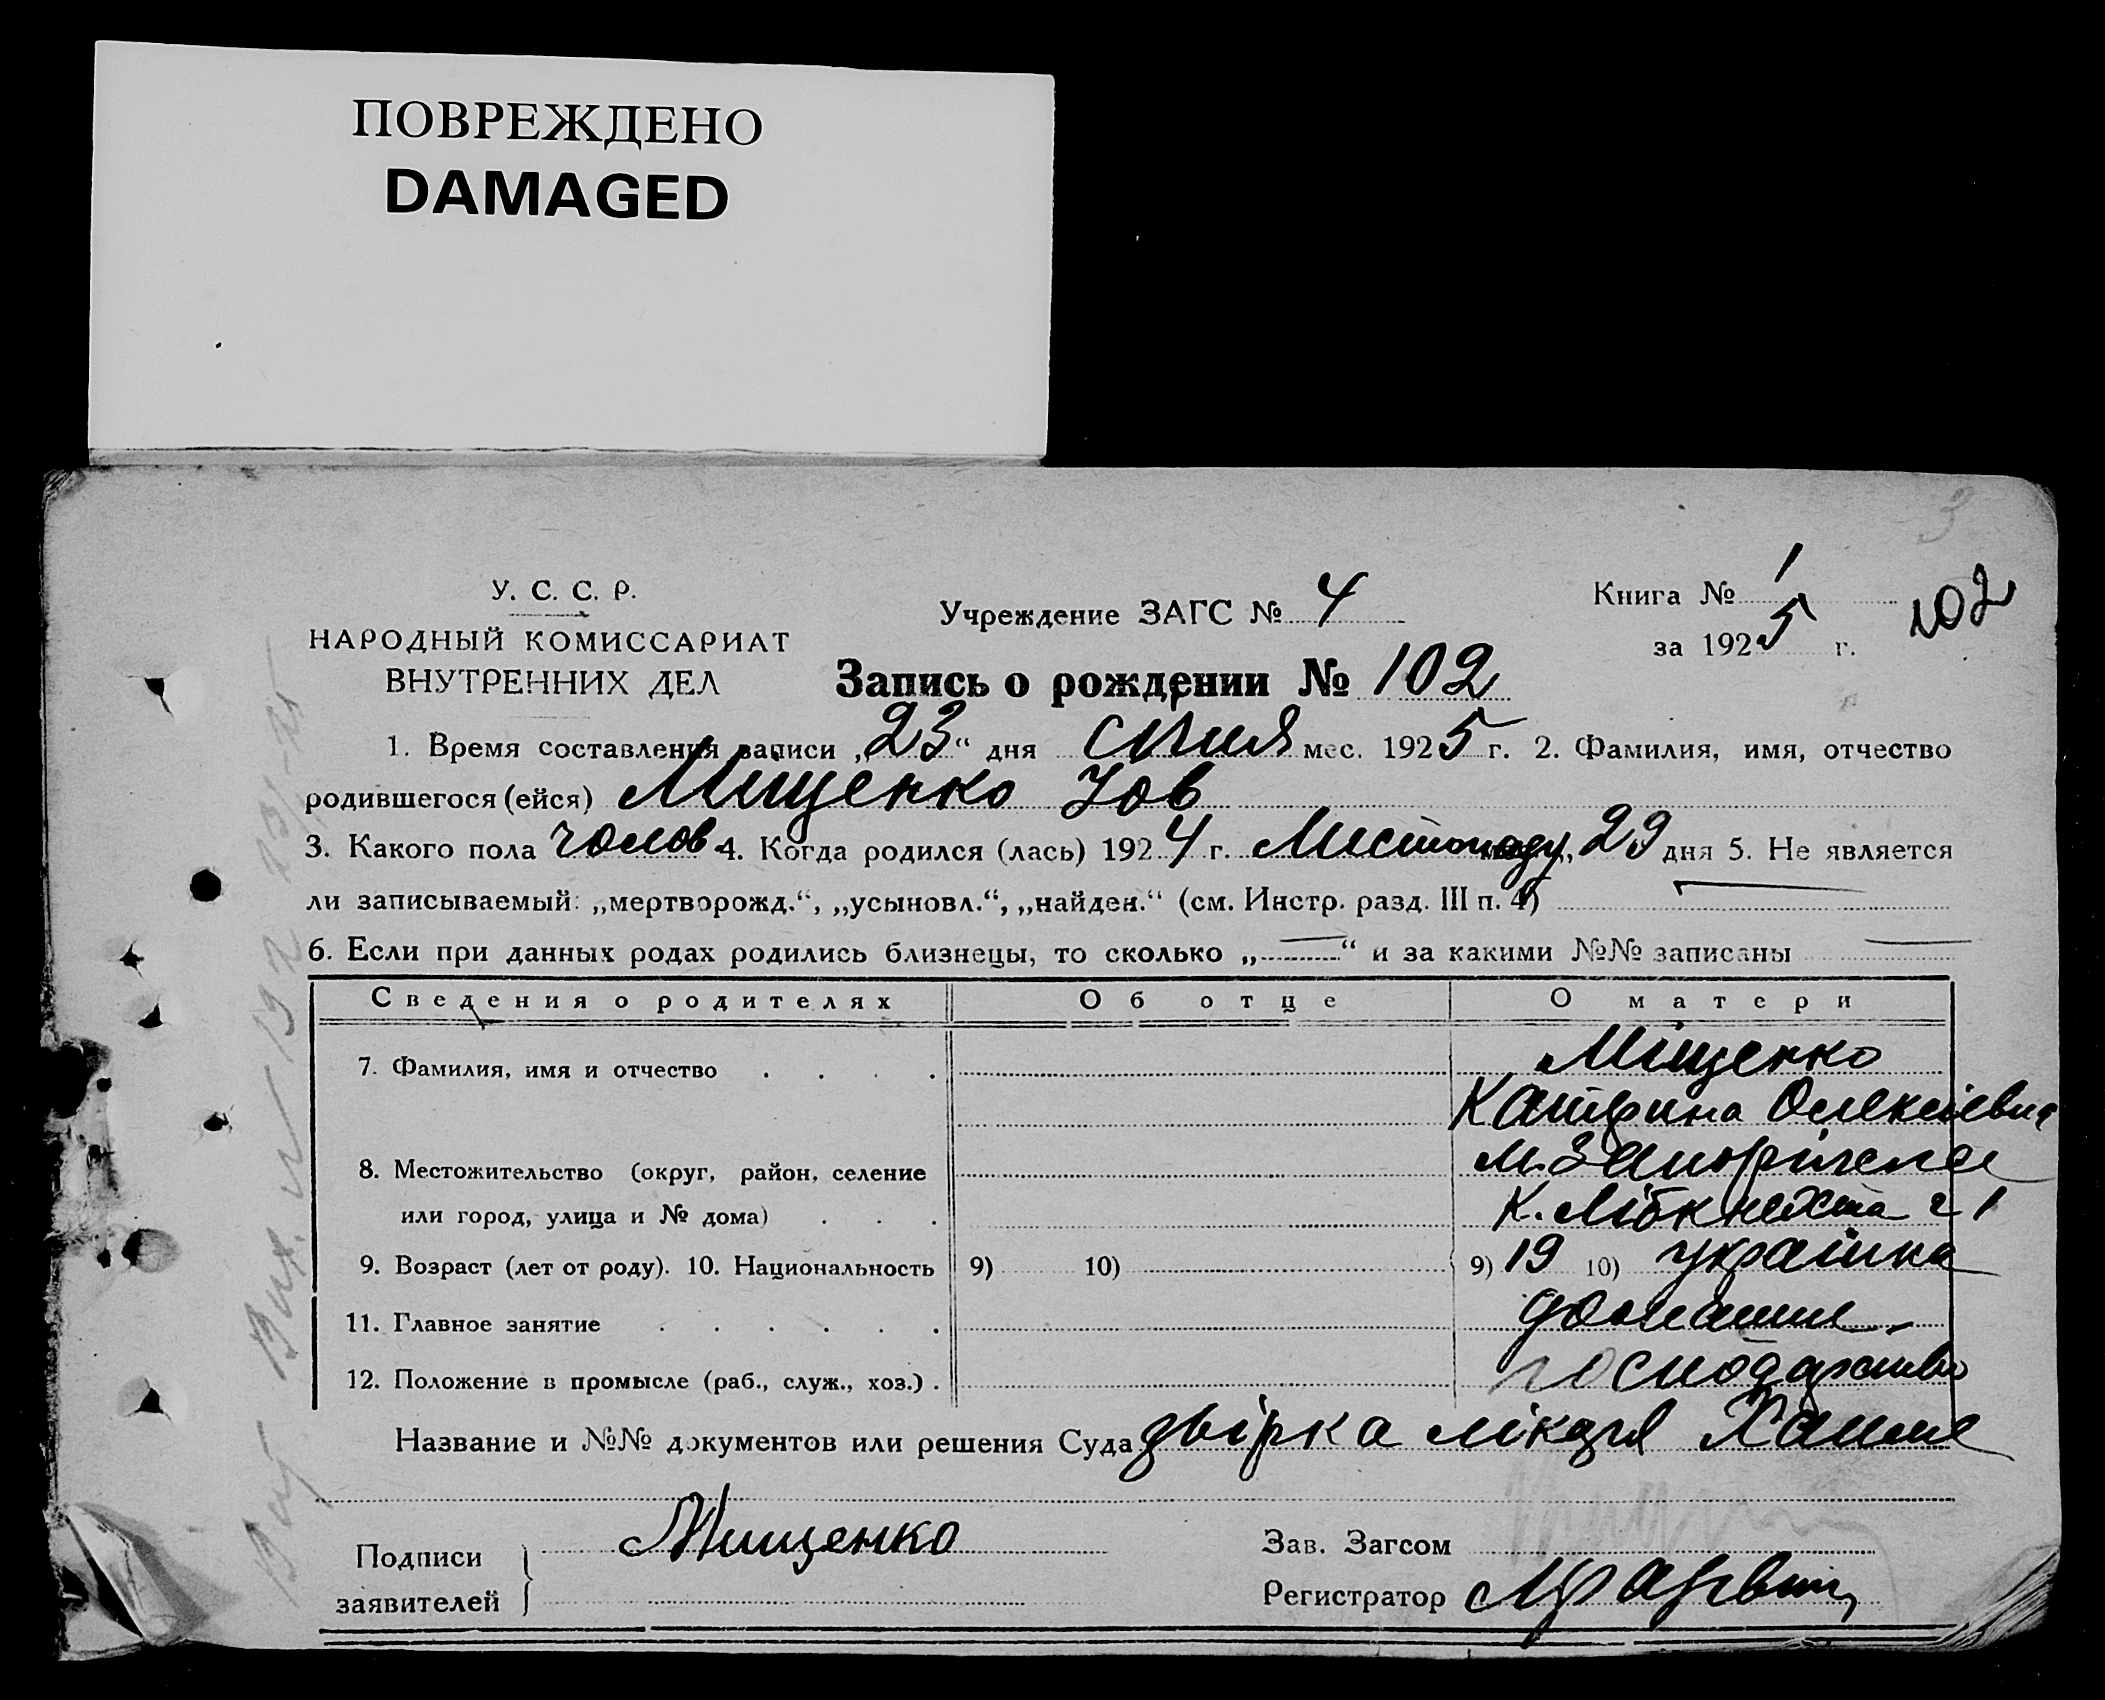 ПОВРЕЖДЕНО
DAMAGED
3
У. С. С. Р.
НАРОДНЫЙ КОМИССАРИАТ
ВНУТРЕННИХ ДЕЛ
Учреждение ЗАГС № 4
Книга № 1
за 1925 г.
102
Запись о рождении № 102
1. Время составления записи „23“ дня січня мес. 1925 г. 2. Фамилия, имя, отчество
родившегося (ейся) Міщенко Іов
3. Какого пола чолов. 4. Когда родился (лась) 1924 г. Листопаду, 29 дня 5. Не является
ли записываемый: „мертворожд.“, „усыновл.“, „найден.“ (см. Инстр. разд. III п. 4)
6. Если при данных родах родились близнецы, то сколько „—“ и за какими №№ записаны —
Сведения о родителях Об отце О матери
7. Фамилия, имя и отчество . . . . Міщенко
Катерина Олексіевна
8. Местожительство (округ, район, селение м. Запоріжжа
или город, улица и № дома) . . . К. Лібкнехта 21
9. Возраст (лет от роду). 10. Национальность 9) 10) 9) 19 10) українка
11. Главное занятие . . . . . . домашнє
12. Положение в промысле (раб., служ., хоз.) . господарство
Название и №№ документов или решения Суда двірка лікаря
Подписи
заявителей
Мищенко
Зав. Загсом
Регистратор